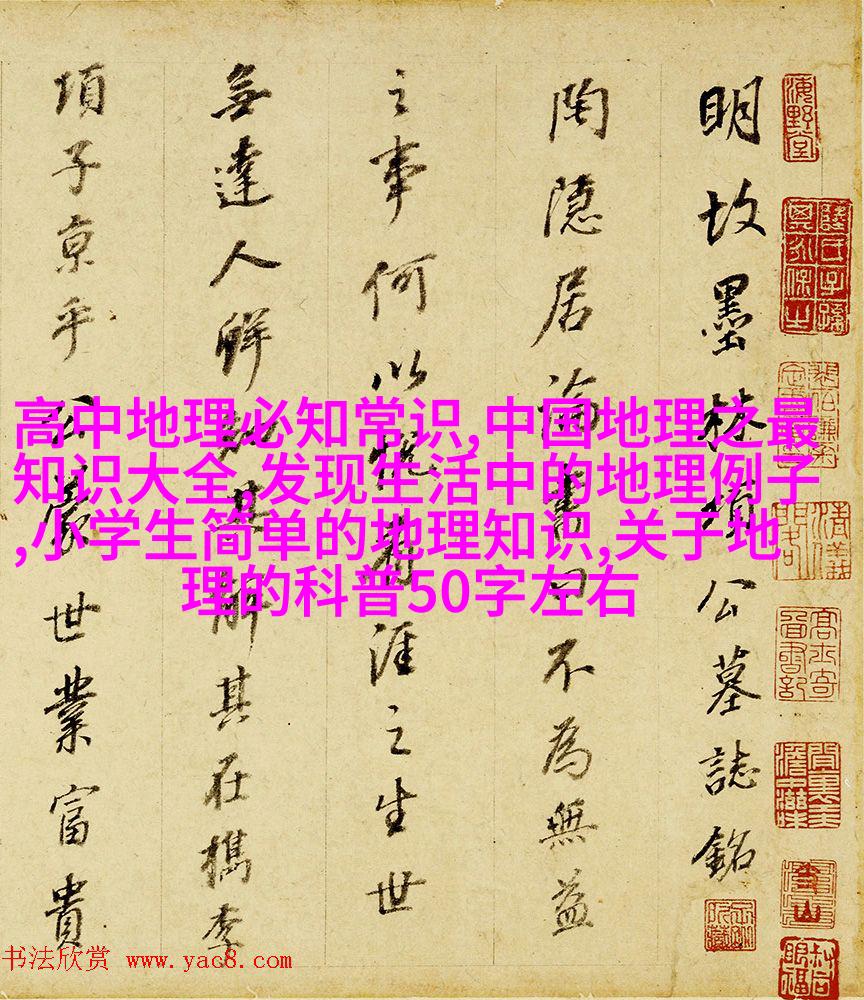 明故墨林項公墓誌銘
陶隱居論書曰不為無益
之事何以悅涯之生世
無達人鮮能其解其在檇李
項子京乎公蒙世業富貴
高中地理必知常识,中国地理之最
知识大全,发现生活中的地理例子
,小学生简单的地理知识,关于地
理的科普50字左右
海野堂
书法欣赏 www.yac8.com